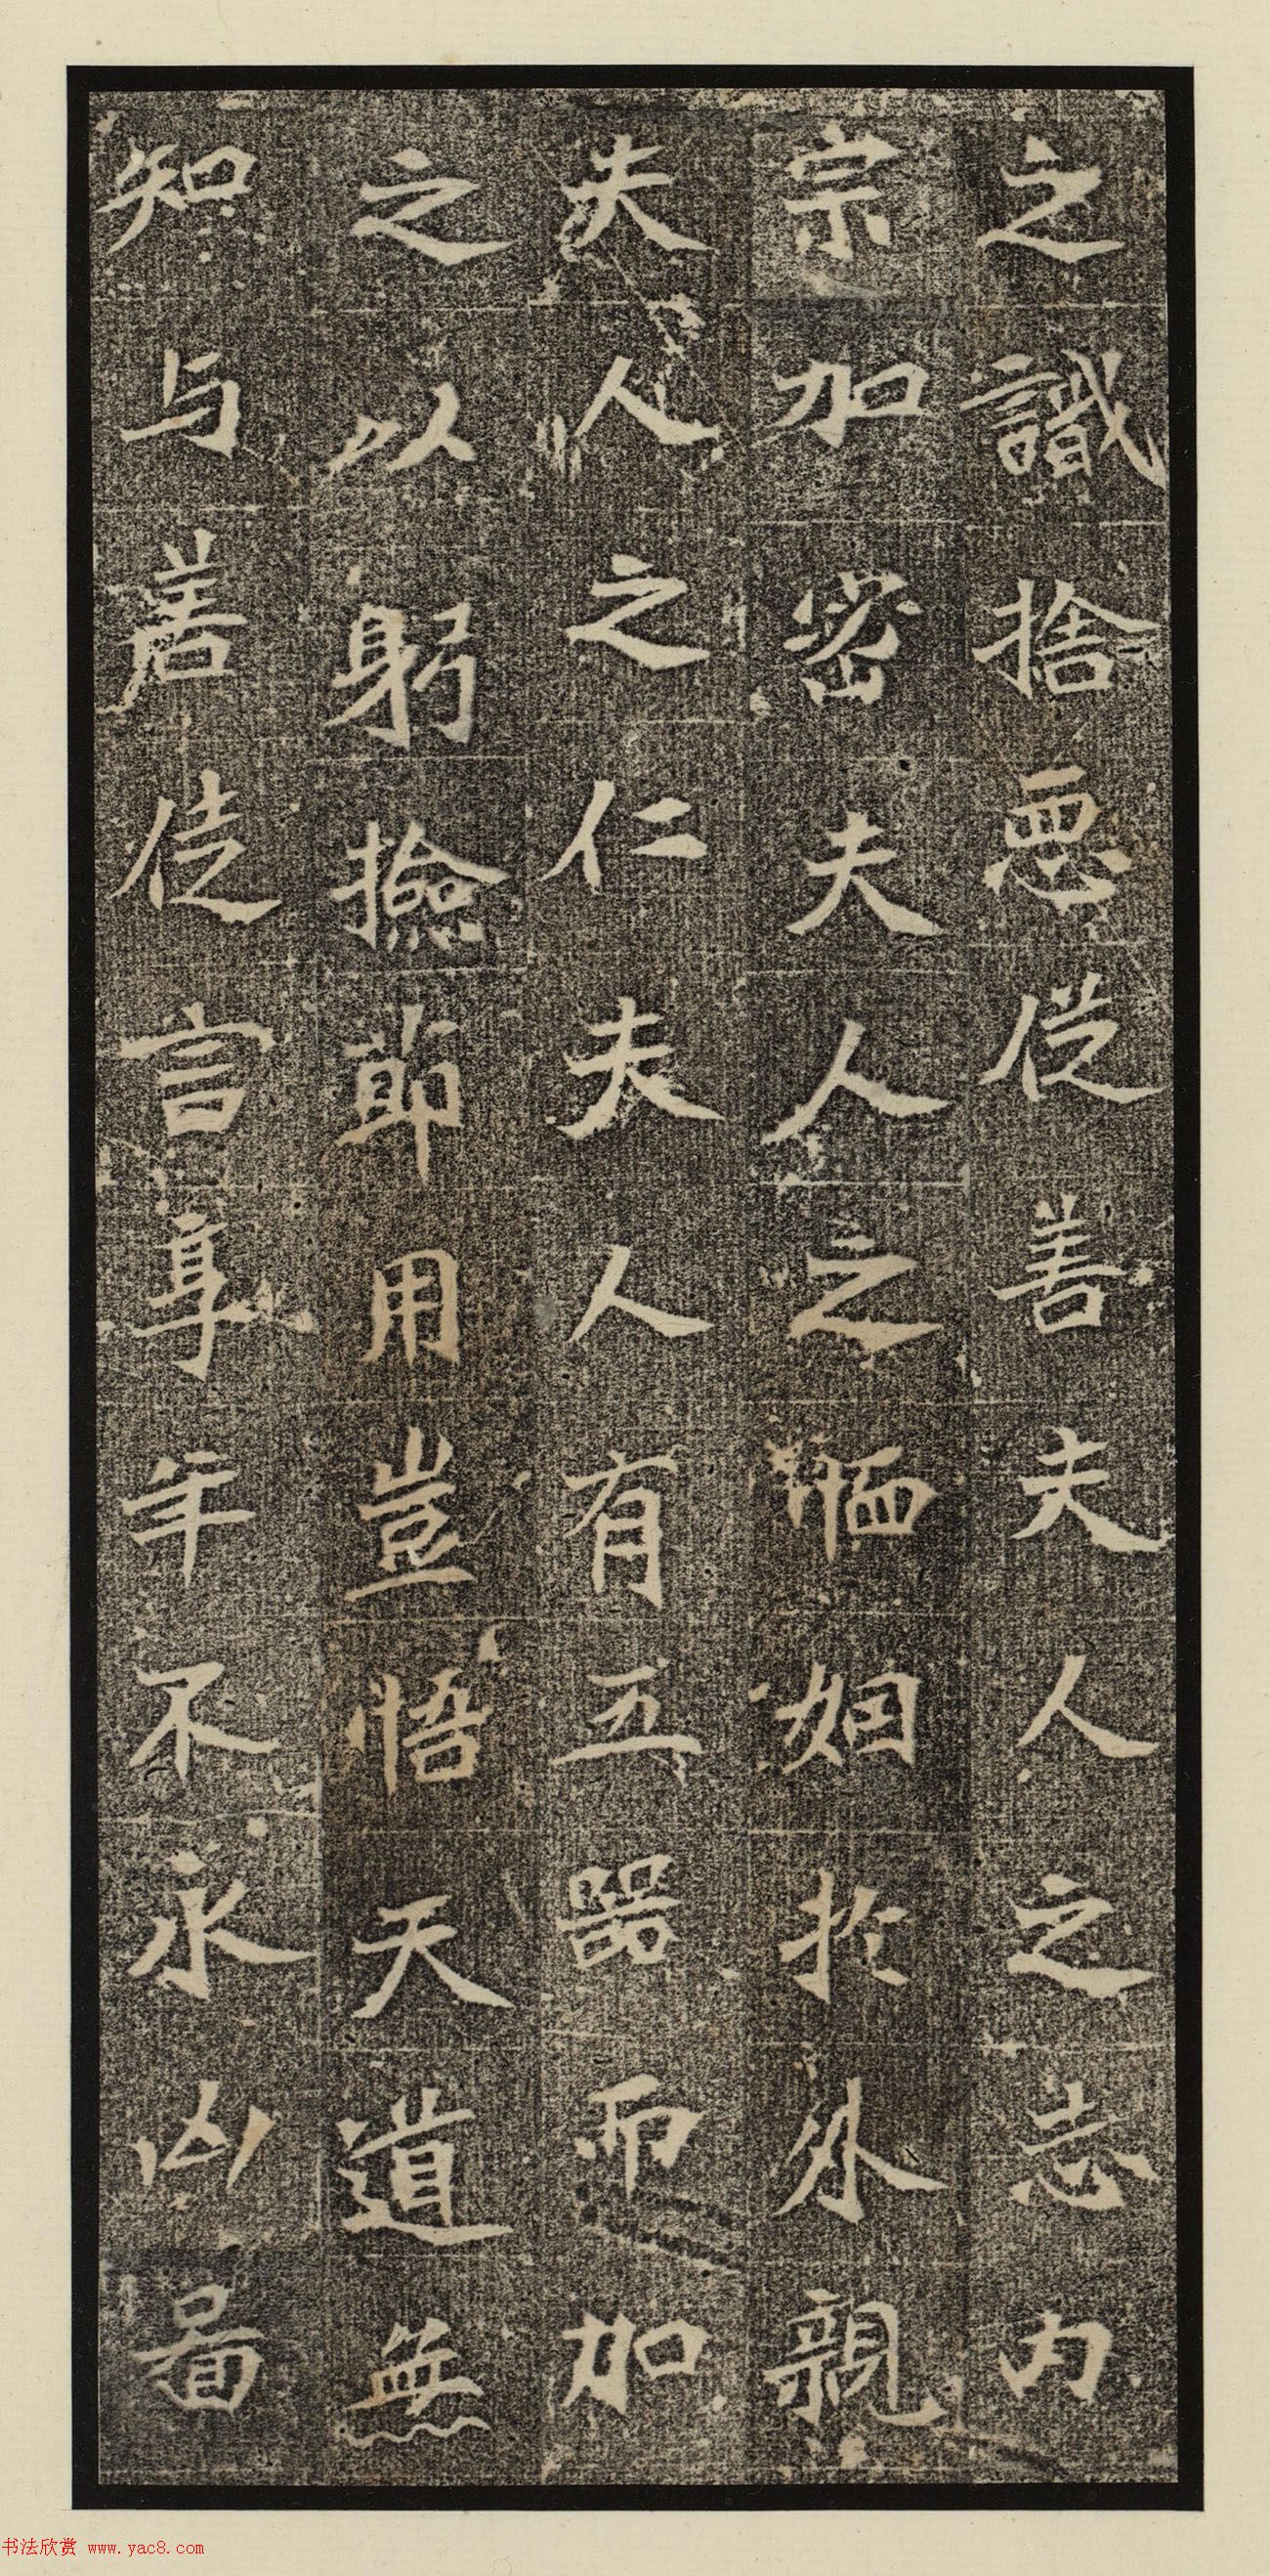 之識捨惡従善夫人之志內
宗加密夫人之恤姻扵外親
夫人之仁夫人有五器而加
之以躬撿節用豈悟天道無
知与善徒言享年不永凶啚
书法欣赏 www.yac8.com